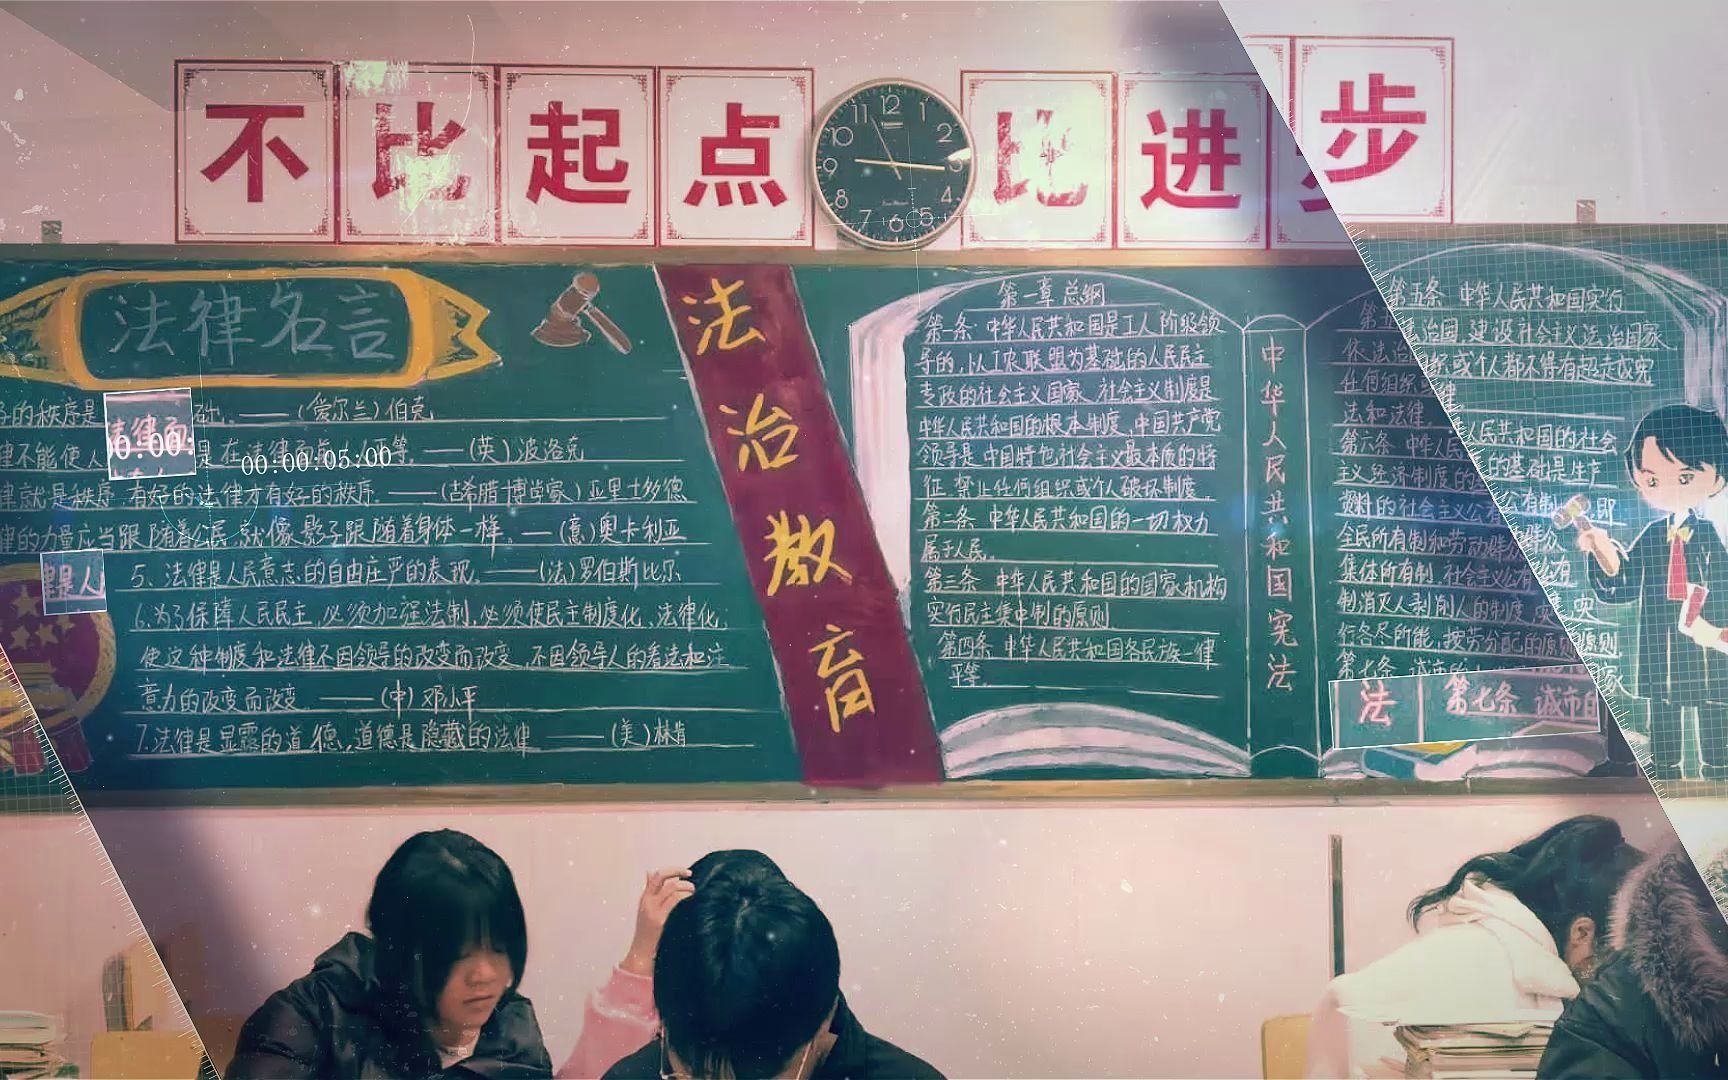 不比起点
比进步
12
11
10
9
8
7
6
5
2
法律名言
各的秩序是
础. ——(爱尔兰)伯克
律不能使人
是在法律面前人人平等. ——(英)波洛克
律就是秩序 有好的法律才有好的秩序. ——(古希腊博学家)亚里士多德
律的力量应当跟随着公民,就像影子跟随着身体一样. ——(意)奥卡利亚
5、法律是人民意志的自由庄严的表现. ——(法)罗伯斯比尔
6.为了保障人民民主,必须加强法制.必须使民主制度化、法律化,
使这种制度和法律不因领导的改变而改变,不因领导人的看法和注
意力的改变而改变. ——(中)邓小平
7.法律是显露的道德,道德是隐藏的法律 ——(美)林肯
法律面
00:00:
00:00:05:00
律是人
法治教育
第一章 总纲
第一条 中华人民共和国是工人阶级领
导的,以工农联盟为基础的人民民主
专政的社会主义国家.社会主义制度是
中华人民共和国的根本制度,中国共产党
领导是中国特色社会主义最本质的特
征.禁止任何组织或个人破坏制度.
第二条 中华人民共和国的一切权力
属于人民.
第三条 中华人民共和国的国家机构
实行民主集中制的原则
第四条 中华人民共和国各民族一律
平等.
中华人民共和国宪法
第五条 中华人民共和国实行
依法治国,建设社会主义法治国家
任何组织或个人都不得有超越宪
法和法律
第六条 中华人民共和国的社会
主义经济制度的基础是生产
资料的社会主义公有制,即
全民所有制和劳动群众
集体所有制.社会主义公有
制消灭人剥削人的制度 实
行各尽所能,按劳分配的原则
第七条 城市的
法 第七条 城市的